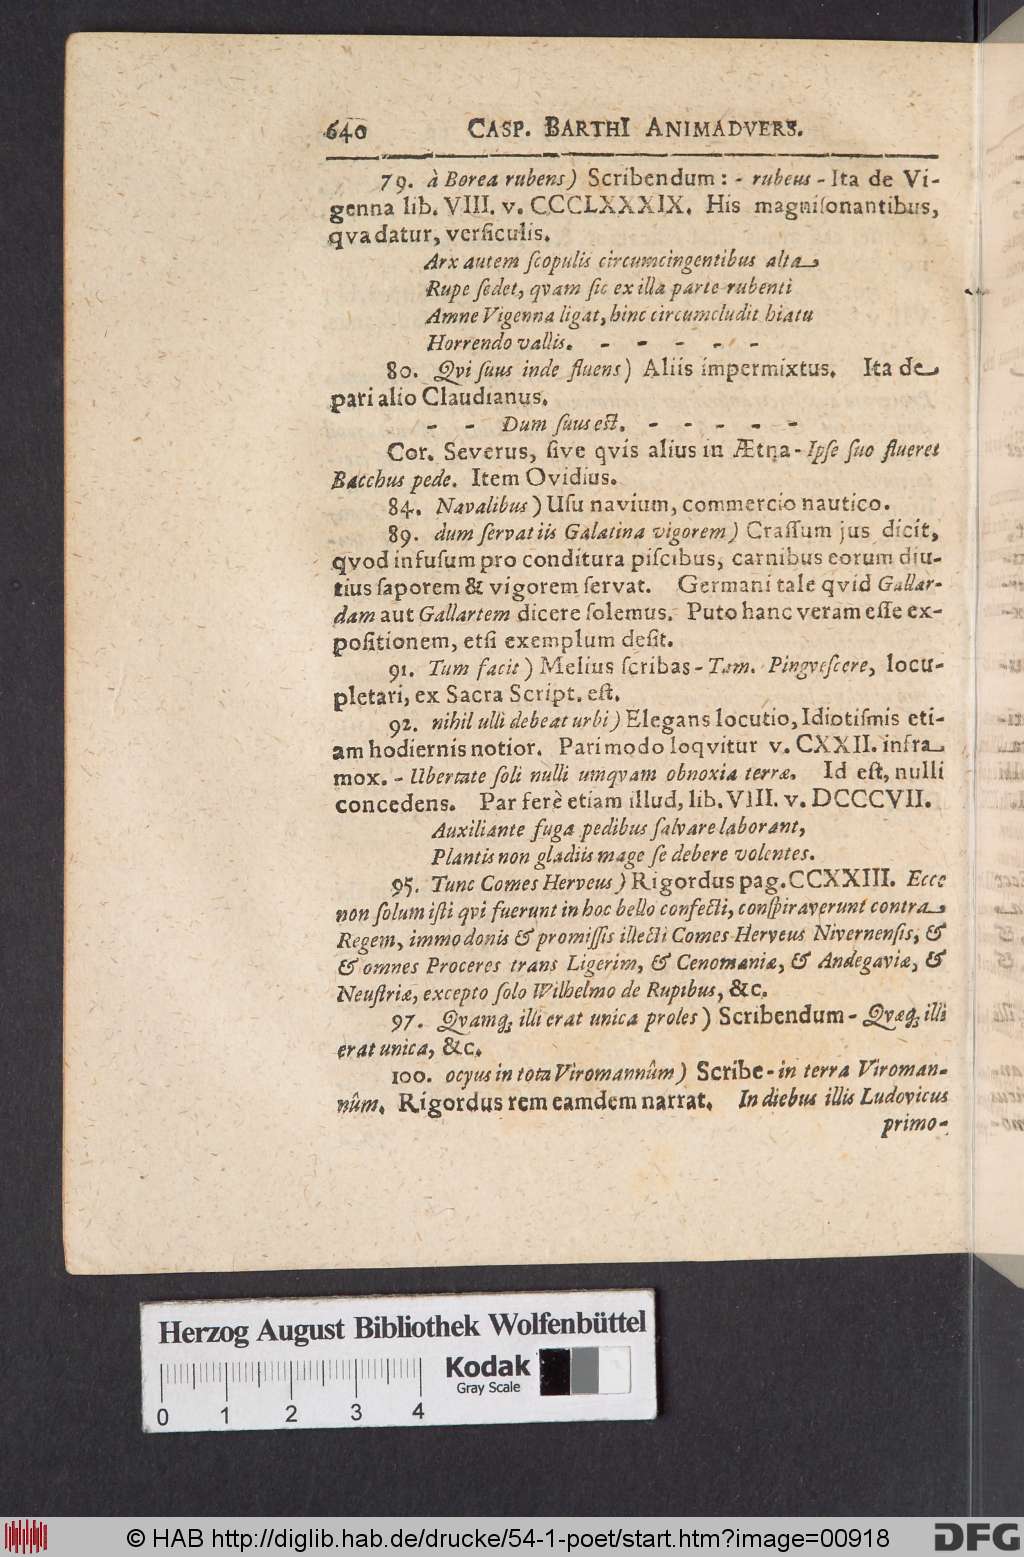 640 CASP. BARTHI ANIMADVERS.
79. à Borea rubens) Scribendum: - rubeus - Ita de Vi-
genna lib. VIII. v. CCCLXXXIX. His magniſonantibus,
qva datur, verſiculis.
Arx autem ſcopulis circumcingentibus alta
Rupe ſedet, qvam ſic ex illa parte rubenti
Amne Vigenna ligat, hinc circumcludit hiatu
Horrendo vallis. - - - - -
80. Qvi ſuus inde fluens) Aliis impermixtus. Ita de
pari alio Claudianus.
- - Dum ſuus eſt. - - - - -
Cor. Severus, ſive qvis alius in Ætna - Ipſe ſuo flueret
Bacchus pede. Item Ovidius.
84. Navalibus) Uſu navium, commercio nautico.
89. dum ſervat iis Galatina vigorem) Craſſum jus dicit,
qvod infuſum pro conditura piſcibus, carnibus eorum diu-
tius ſaporem & vigorem ſervat. Germani tale qvid Gallar-
dam aut Gallartem dicere ſolemus. Puto hanc veram eſſe ex-
poſitionem, etſi exemplum deſit.
91. Tum facit) Melius ſcribas - Tam. Pingveſcere, locu-
pletari, ex Sacra Script. eſt.
92. nihil ulli debeat urbi) Elegans locutio, Idiotiſmis eti-
am hodiernis notior. Pari modo loqvitur v. CXXII. infra
mox. - Ubertate ſoli nulli umqvam obnoxia terræ. Id eſt, nulli
concedens. Par ferè etiam illud, lib. VIII. v. DCCCVII.
Auxiliante fuga pedibus ſalvare laborant,
Plantis non gladiis mage ſe debere volentes.
95. Tunc Comes Herveus) Rigordus pag. CCXXIII. Ecce
non ſolum iſti qvi fuerunt in hoc bello confecti, conſpiraverunt contra
Regem, immo donis & promiſſis illecti Comes Herveus Nivernenſis, &
& omnes Proceres trans Ligerim, & Cenomaniæ, & Andegaviæ, &
Neuſtriæ, excepto ſolo Wilhelmo de Rupibus, &c.
97. Qvamq; illi erat unica proles) Scribendum - Qvæq; illi
erat unica, &c.
100. ocyus in tota Viromannûm) Scribe - in terra Viroman-
nûm. Rigordus rem eamdem narrat. In diebus illis Ludovicus
primo-
Herzog August Bibliothek Wolfenbüttel
Kodak
Gray Scale
0 1 2 3 4
© HAB http://diglib.hab.de/drucke/54-1-poet/start.htm?image=00918
DFG